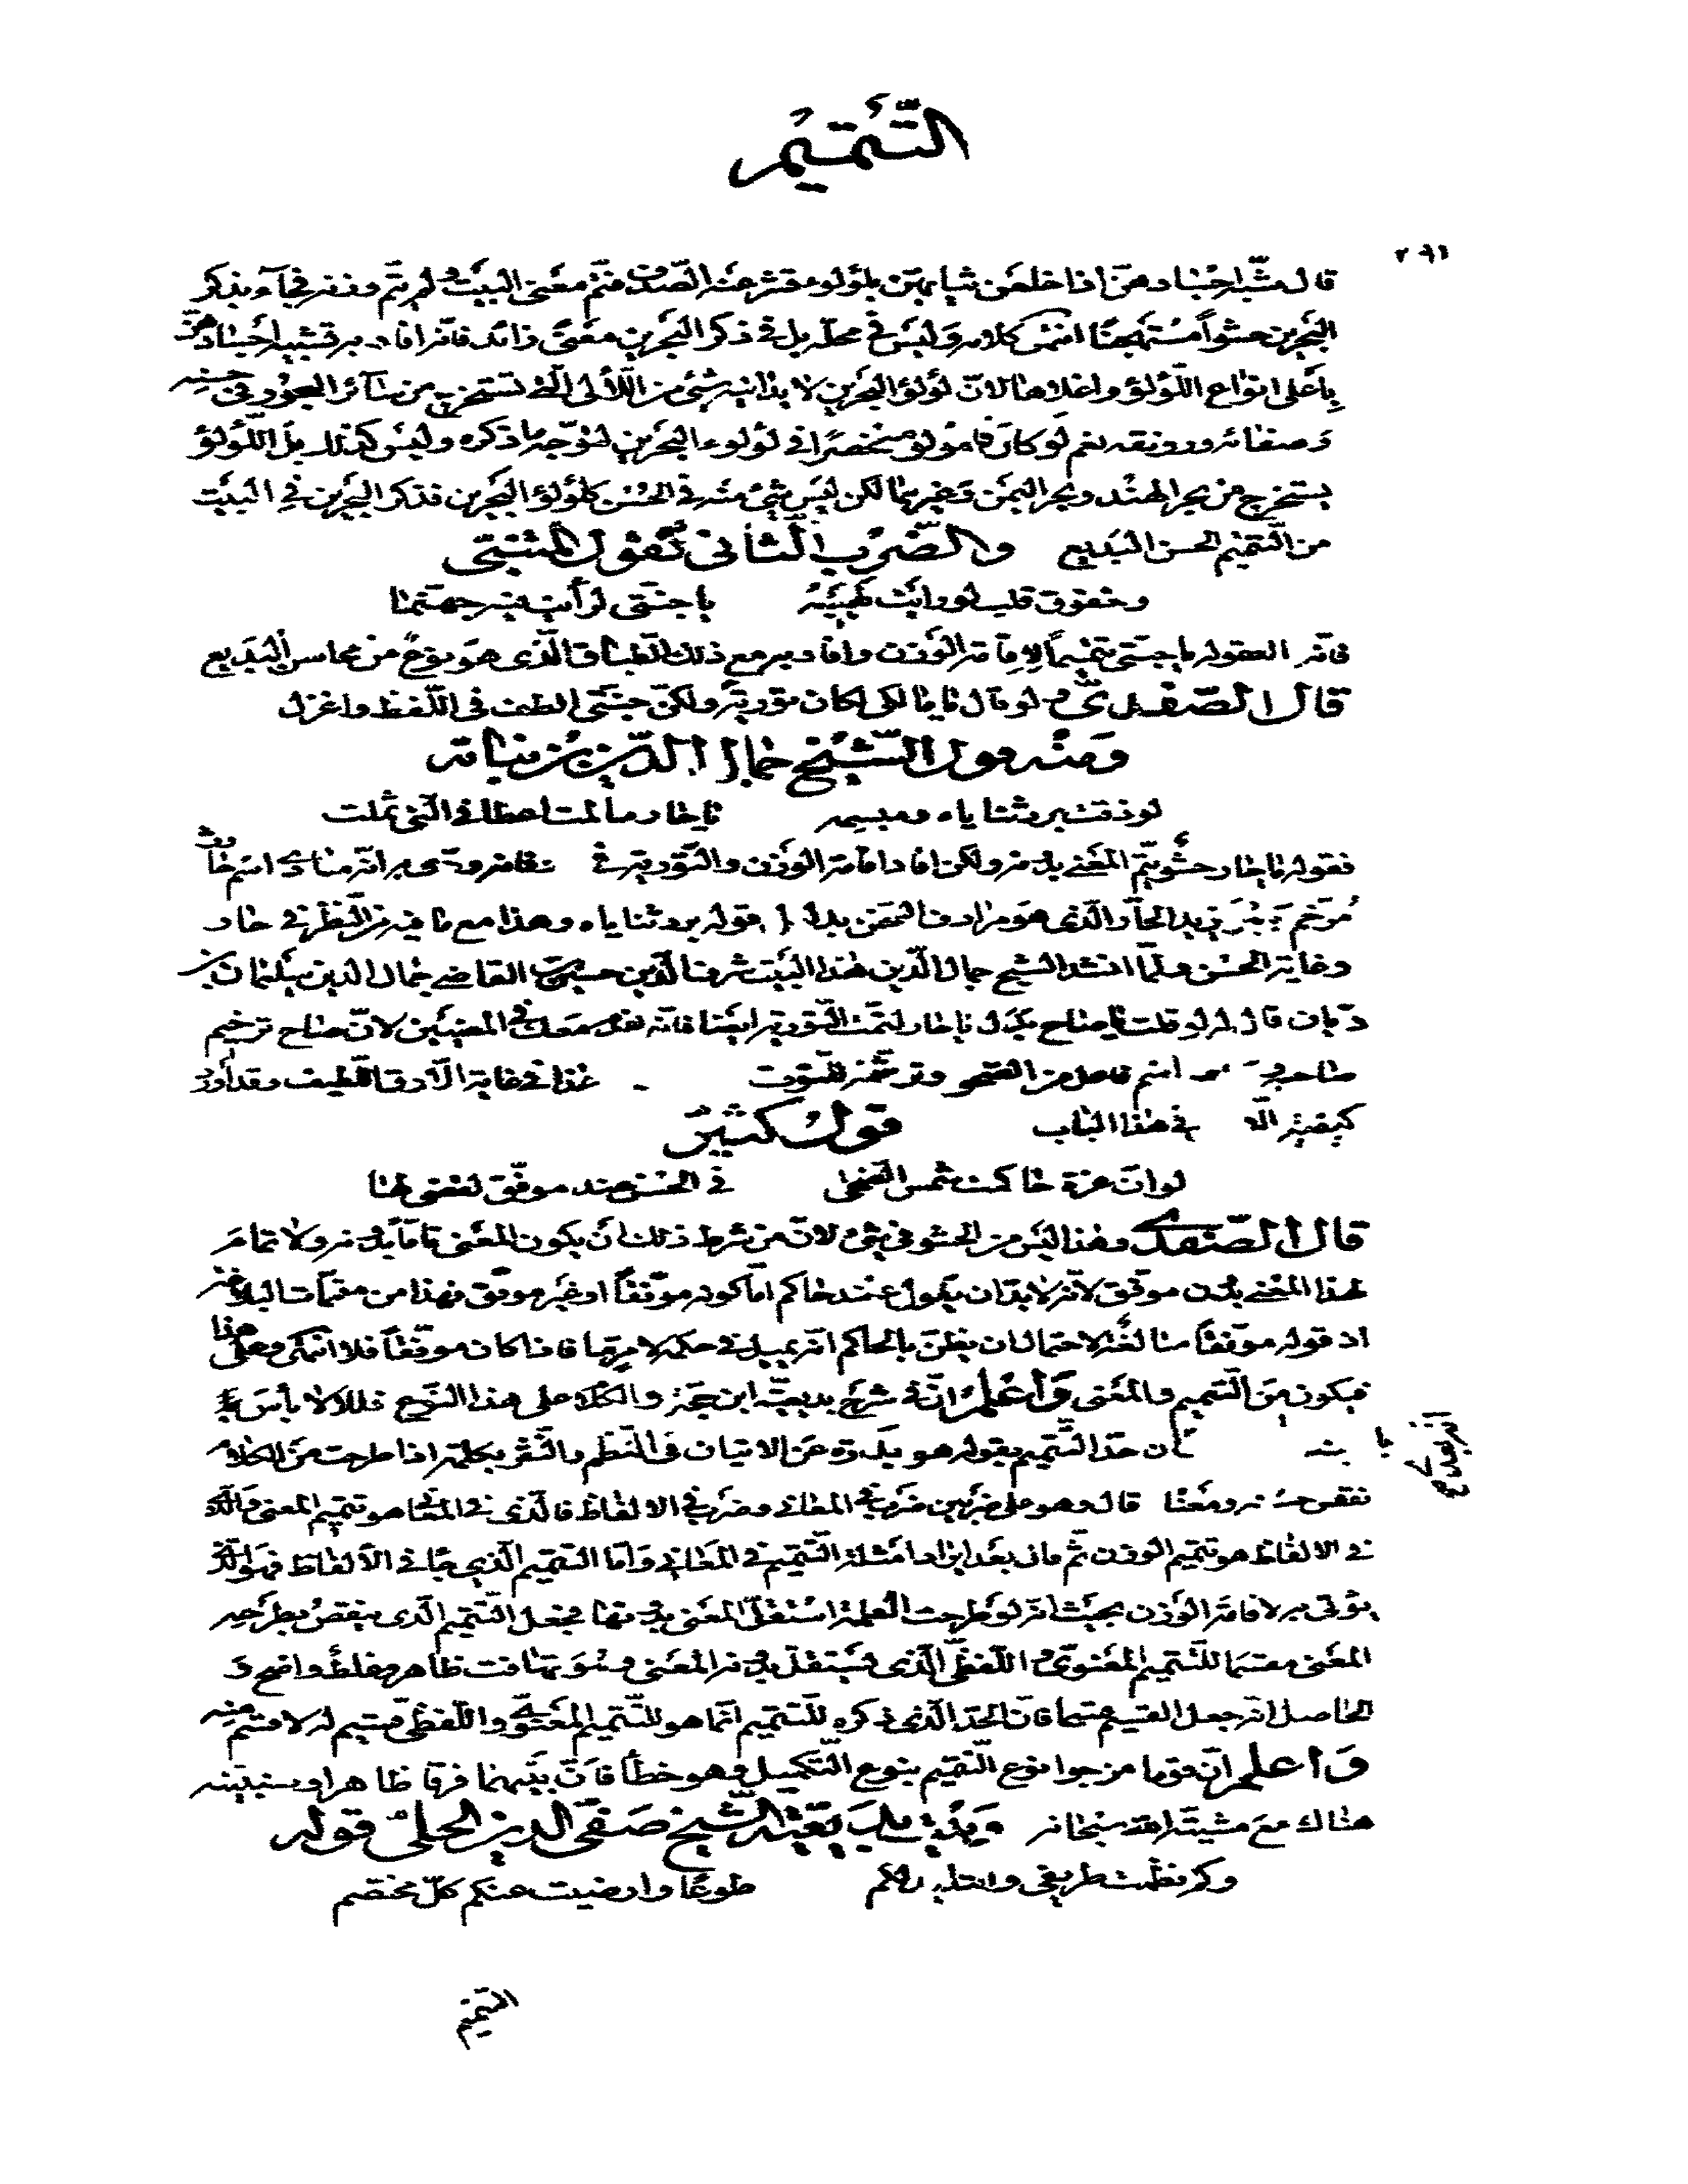 التَّتْمِيمُ
٢٩١
قال شبّه اجسادهنّ اذا خلعن ثيابهنّ بلؤلوء قشر عنه الصّدف فتمّ معنى البيت ولم يتمّ وزنه فجاء بذكر
البحرين حشواً مستهجنًا انتهى كلامه وليس في محله بل في ذكر البحرين معنىً زائد فانه افاد به تشبيه اجسادهنّ
بأعلى انواع اللّؤلؤ واغلاها لانّ لؤلؤ البحرين لا يدانيه شئ من اللآلى الّتى تستخرج من سآئر البحور في حسنه
وصفائه ورونقه نعم لو كان اللؤلؤ منحصرًا في لؤلوء البحرين لتوجّه ما ذكره وليس كذلك بل اللّؤلؤ
يستخرج من بحر الهند وبحر اليمن وغيرهما لكن ليس شئ منه في الحسن كلؤلؤ البحرين فذكر البحرين في البيت
من التّتميم الحسن البديع والضّرب الثّانى كقول المتنبّى
وخفوق قلب لو رايت لهيبه يا جنّتى لرأيت فيه جهنّما
فانه بقوله يا جنّتى تتميمًا لاقامة الوزن وافاد به مع ذلك الطّباق الّذى هو نوع من محاسن البديع
قال الصّفدىّ لو قال يا مالكى لكان تورية ولكن جنّتى الطف في اللّفظ واغزل
ومنه قول الشّيخ جمال الدّين بن نباتة
لو ذقت برد ثناياه ومبسمه يا حار ما لمت اعطافى الّتى ثملت
فقوله يا حار حشو يتمّ المعنى بدونه ولكن افاد اقامة الوزن والتّورية في
مرخّم الحار والّذى هو مرادف قوله برد ثناياه وهذا مع ما فيه من النّظر في حار
وغاية الحسن ولمّا انشد الشيخ جمال الدّين هذا البيت شرف الدّين حسين القاضى جمال الدين سليمان بن
ريان قال له لو قلت يا صاح بدل يا حار لتمّت التّورية ايضا فانّه معك في المعنيين لانّ صاح ترخيم
صاحب اسم فاعل من الصّحو غدا في غاية اللّطيف وقد اورد
في هذا الباب
قول كثيّر
لو انّ عزة حاكمت شمس الضّحى في الحسن عند موفّق لقضى لها
قال الصّفدى وهذا ليس من الحشو في شئ لانّ من شرط ذلك ان يكون المعنى تامًّا بدونه ولا تمام
لهذا المعنى بدون موفّق لانّه لا بدّ ان يكون عند حاكم امّا كونه موفّقًا او غير موفّق فهذا من متمّمات البلاغة
اذ قوله موفّقًا مبالغة لاحتمال ان يظنّ بالحاكم انّه يميل في حكمه لامر ما فاذا كان موفّقًا فلا انتهى وعلى هذا
فيكون من التّتميم والمعنى واعلم انّ في شرح بديعيّة ابن حجّة والكلام على هذا النّوع خللا لا بأس
حدّ التّتميم بقوله هو عبارة عن الاتيان في النّظم والنّثر بكلمة اذا طرحت من الكلام
نقص حسنه ومعناه قال وهو على ضربين ضرب في المعانى وضرب في الالفاظ فالّذى في المعانى هو تتميم المعنى والّذى
في الالفاظ هو تتميم الوزن ثم قال بعد ايراد امثلة التّتميم في المعانى وامّا التّتميم الّذى جاء في الألفاظ فهو الّذى
يؤتى به لاقامة الوزن بحيث انّه لو طرحت الكلمة استقلّ المعنى بدونها فجعل التّتميم الّذى ينقص بطرحه
المعنى مقسمًا للتّتميم المعنوىّ واللّفظى الّذى يستقلّ بدونه المعنى وهو تهافت ظاهر وغلط واضح و
الحاصل انّه جعل القسيم مقسمًا فانّ الحدّ الّذى ذكره للتّتميم انّما هو للتّتميم المعنوىّ واللّفظى قسيم له لا قسم منه
واعلم انّ قوما مزجوا نوع التّتميم بنوع التّكميل وهو خطأ فانّ بينهما فرقا ظاهرا وسنبيّنه
هناك مع مشيّة الله سبحانه وبيت بديعيّة الشّيخ صفىّ الدين الحلىّ قوله
طوعًا وارضيت عنكم كلّ مختصم
التّتميم